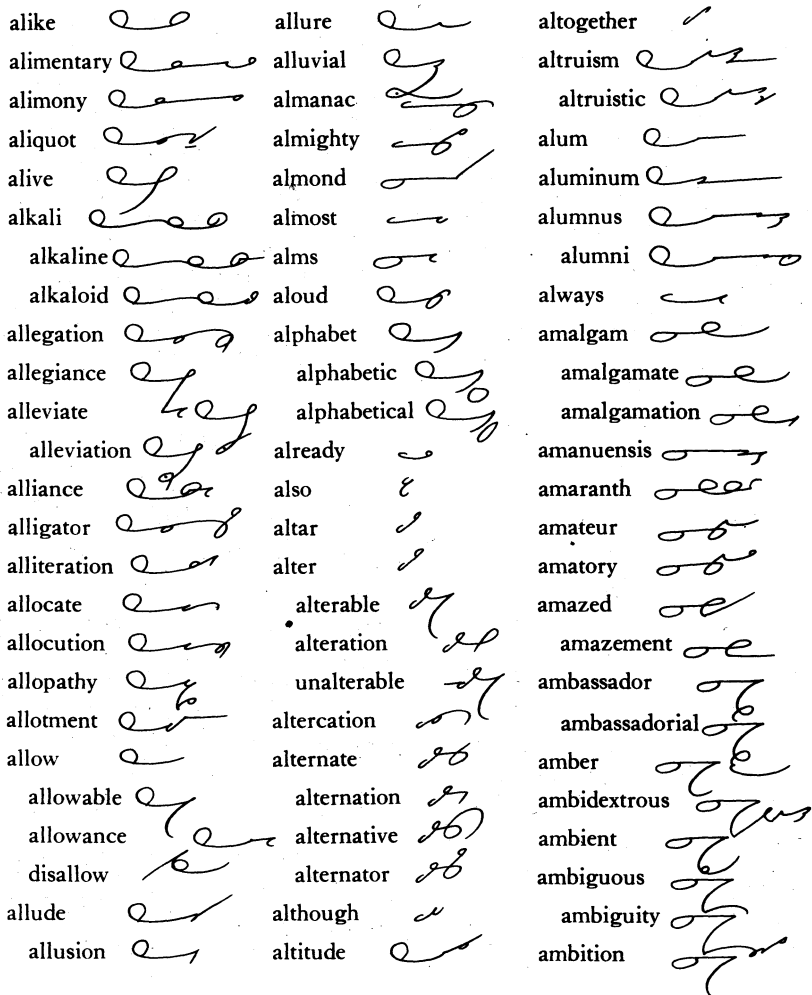 alike
alimentary
alimony
aliquot
alive
alkali
alkaline
alkaloid
allegation
allegiance
alleviate
alleviation
alliance
alligator
alliteration
allocate
allocution
allopathy
allotment
allow
allowable
allowance
disallow
allude
allusion
allure
alluvial
almanac
almighty
almond
almost
alms
aloud
alphabet
alphabetic
alphabetical
already
also
altar
alter
alterable
alteration
unalterable
altercation
alternate
alternation
alternative
alternator
although
altitude
altogether
altruism
altruistic
alum
aluminum
alumnus
alumni
always
amalgam
amalgamate
amalgamation
amanuensis
amaranth
amateur
amatory
amazed
amazement
ambassador
ambassadorial
amber
ambidextrous
ambient
ambiguous
ambiguity
ambition